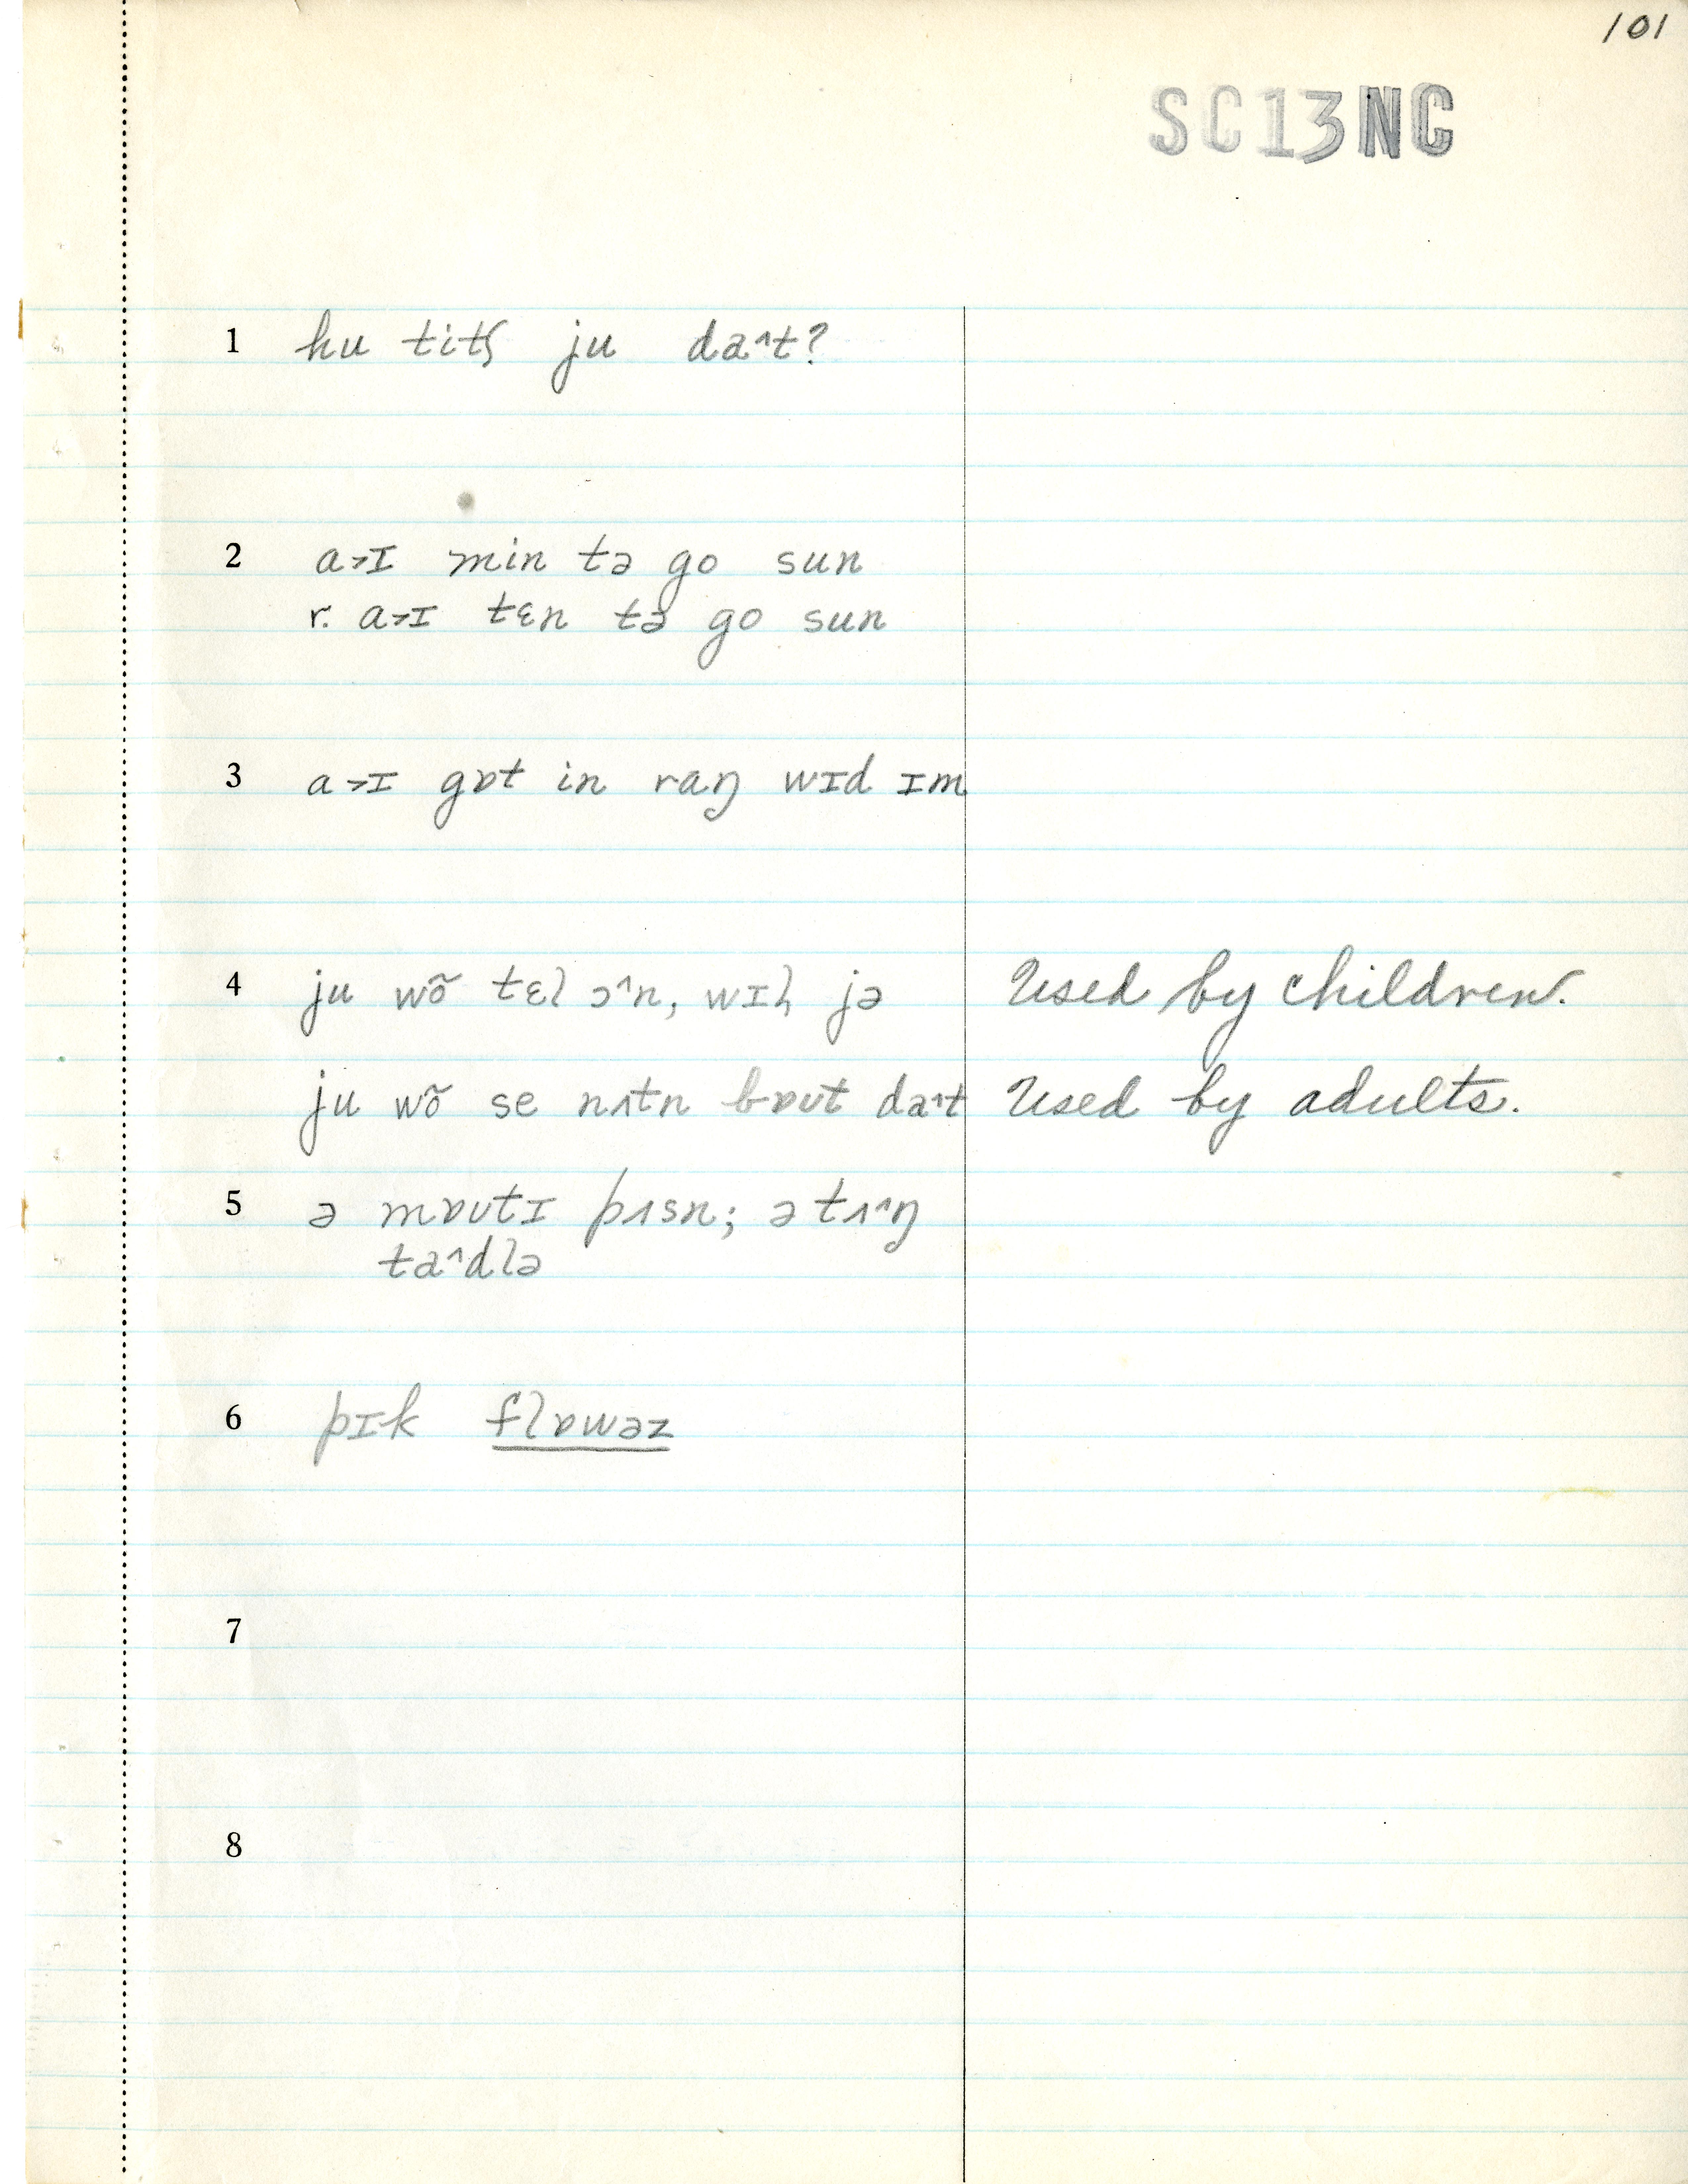 101
SC13NC
1 hu titʃ ju da˄t?
2 a˃ɪ min tə go sun
r. a˃ɪ tɛn tə go sun
3 a˃ɪ gɒt in raŋ wɪd ɪm
4 ju wõ tɛl ɔ˄n, wɪl̥ jə Used by children.
ju wõ se nʌtn bɒʊt da˄t Used by adults.
5 ə mɒʊtɪ pʌsn; ə tʌ˄ŋ
ta˄dlə
6 pɪk flɒwəz
7
8